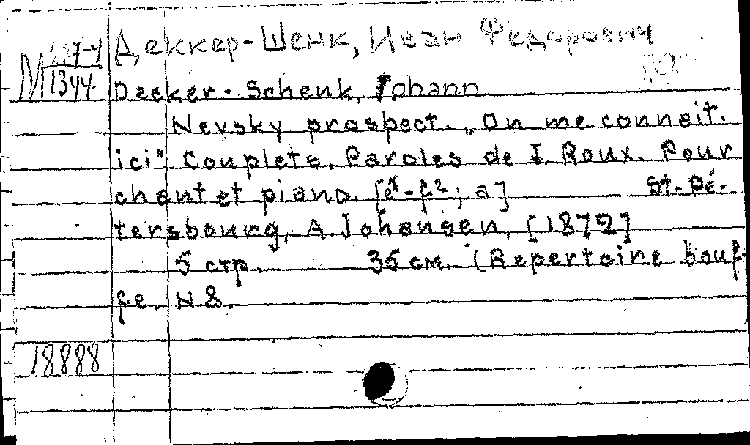 Деккер-Шенк, Иван Федорович
М 1344
Decker-Schenk, Johann
Nevsky prospect. „On me connait.
ici" Couplets. Paroles de I. Roux. Pour
chant et piano. [e¹-f²; a] St.-Pé-
tersbourg, A. Johansen, [1872]
5 стр. 35 см. (Repertoire bouf-
fe. N 8.
18888